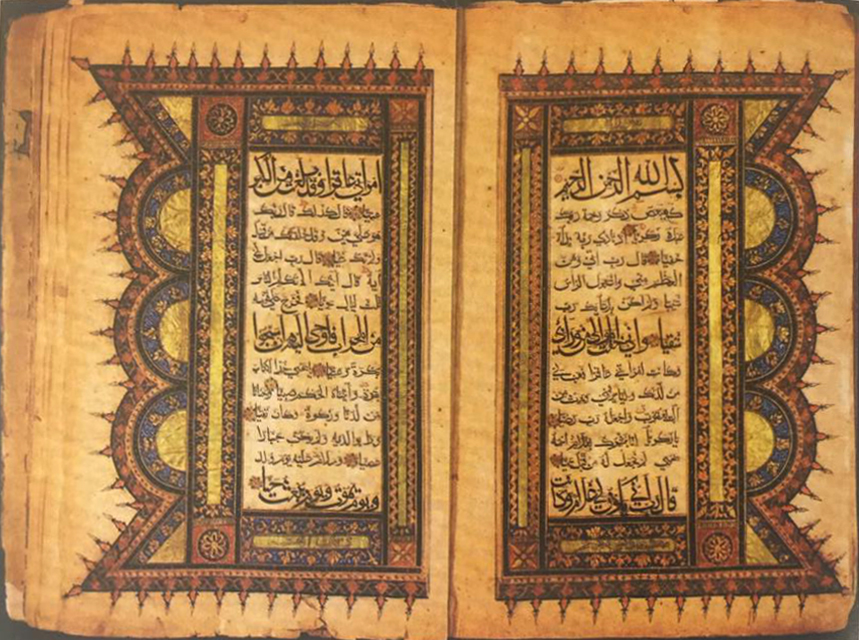 بسم الله الرحمن الرحيم
كهيعص ذكر رحمة ربك
عبده زكريا اذ نادى ربه نداء
خفيا قال رب اني وهن
العظم مني واشتعل الراس
شيبا ولم اكن بدعائك رب
شقيا واني خفت الموالي من وراءي
وكانت امراتي عاقرا فهب لي
من لدنك وليا يرثني ويرث من
ال يعقوب واجعله رب رضيا
يزكريا انا نبشرك بغلام اسمه
يحيى لم نجعل له من قبل سميا
قال رب انى يكون لي غلام وكانت
امراتي عاقرا وقد بلغت من الكبر
عتيا قال كذلك قال ربك
هو علي هين وقد خلقتك من قبل
ولم تك شيئا قال رب اجعل لي
اية قال ايتك الا تكلم الناس
ثلث ليال سويا فخرج على قومه
من المحراب فاوحى اليهم ان سبحوا
بكرة وعشيا ييحيى خذ الكتاب
بقوة واتيناه الحكم صبيا وحنانا
من لدنا وزكوة وكان تقيا
وبرا بوالديه ولم يكن جبارا
عصيا وسلام عليه يوم ولد
ويوم يموت ويوم يبعث حيا